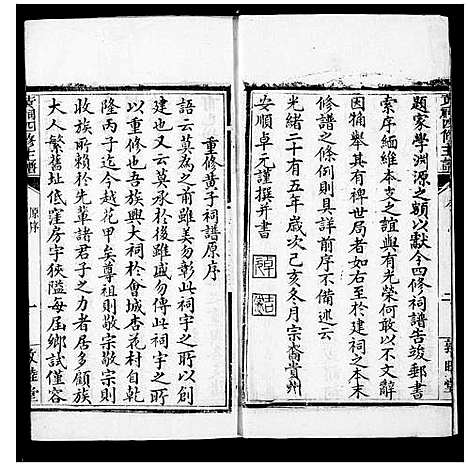 題家學淵源之額以獻今四修祠譜告竣郵書
索序緬維本支之誼與有光榮何敢以不文辭
因犒舉其有裨世局者如右至於建祠之本末
修譜之條例則具詳前序不備述云
光緒二十有五年歲次己亥冬月宗裔貴州
安順卓元謹撰并書
重修黃子祠譜原序
語云莫為之前雖美勿彰此祠宇之所以創
建也又云莫承於後雖盛勿傳此祠宇之所
以重修也吾族興大祠於會城杏花村自乾
隆丙子迄今越花甲矣尊祖則敬宗敬宗則
收族所賴於先輩諸君子之力者居多顧族
大人繁舊址低窪房宇狹隘每屆鄉試僅容
黃祠四修主譜
原序
一
敦睦堂